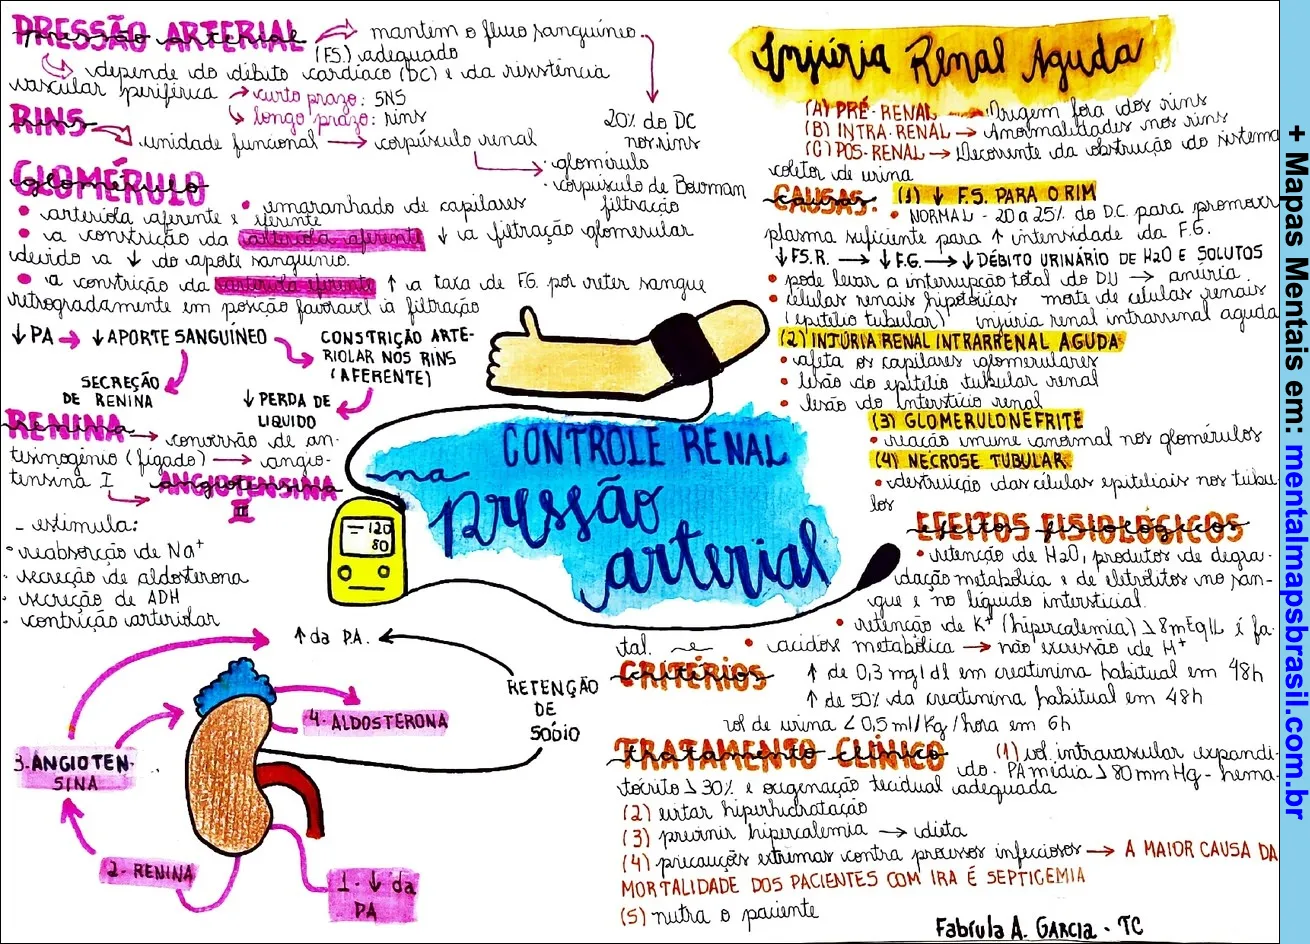 PRESSÃO ARTERIAL → mantem o fluxo sanguíneo
(FS) adequado
depende do débito cardíaco (DC) e da resistência
vascular periférica → curto prazo: SNS
→ longo prazo: rins
20% do DC
nos rins
RINS → unidade funcional → corpúsculo renal
• glomérulo
• corpúsculo de Bowman
filtração
GLOMÉRULO
• arteríola aferente e eferente
• emaranhado de capilares
• a constrição da arteríola aferente ↓ a filtração glomerular
devido a ↓ do aporte sanguíneo.
• a constrição da arteríola eferente ↑ a taxa de FG por reter sangue
retrogradamente em posição favorável à filtração
↓PA → ↓APORTE SANGUÍNEO → CONSTRIÇÃO ARTE-
RIOLAR NOS RINS
(AFERENTE)
SECREÇÃO
DE RENINA
↓ PERDA DE
LIQUIDO
RENINA → conversão de an-
tesinogênio (fígado) → angio-
tensina I → ANGIOTENSINA
II
- estimula:
• reabsorção de Na+
• secreção de aldosterona
• secreção de ADH
• contrição arteriolar
↑ da PA.
RETENÇÃO
DE
SÓDIO
4- ALDOSTERONA
3. ANGIOTEN-
SINA
2- RENINA
1- ↓ da
PA
120
80
CONTROLE RENAL
na
pressão
arterial
Injúria Renal Aguda
(A) PRÉ-RENAL → Origem fora dos rins
(B) INTRA-RENAL → Anormalidades nos rins
(C) POS-RENAL → Decorrente da obstrução do sistema
coletor de urina
CAUSAS: (1) ↓ F.S. PARA O RIM
• NORMAL - 20 a 25% do D.C. para promover
plasma suficiente para ↑ intensidade da F.G.
↓FS.R. → ↓F.G. → ↓DÉBITO URINÁRIO DE H2O E SOLUTOS
• pode levar a interrupção total do DU → anúria.
• células renais hipóxicas morte de células renais
(epitélio tubular) injúria renal intrarrenal aguda
(2) INJURIA RENAL INTRARRENAL AGUDA
• afeta os capilares glomerulares
• lesão do epitélio tubular renal
• lesão do interstício renal
(3) GLOMERULONEFRITE
• reação imune anormal nos glomérulos
(4) NECROSE TUBULAR
• destruição das células epiteliais nos túbu-
los
EFEITOS FISIOLÓGICOS
• retenção de H2O, produtos de degra-
dação metabólica e de eletrólitos no san-
gue e no líquido intersticial.
• retenção de K+ (hipercalemia) > 8mEq/L é fa-
tal. • acidos metabólica → não excreção de H+
CRITÉRIOS ↑ de 0,3 mg/dl em creatinina habitual em 48h
↑ de 50% da creatinina habitual em 48h
vol de urina < 0,5 ml/Kg/hora em 6h
TRATAMENTO CLÍNICO (1) vol. intravascular expandi-
do. PA média > 80mmHg - hema-
tócrito > 30% e oxigenação tecidual adequada
(2) evitar hiperhidratação
(3) previnir hipercalemia → dieta
(4) precauções extremas contra processos infeciosos → A MAIOR CAUSA DA
MORTALIDADE DOS PACIENTES COM IRA É SEPTICEMIA
(5) nutra o paciente
Fabrula A. GARCIA - TC
+ Mapas Mentais em: mentalmapsbrasil.com.br